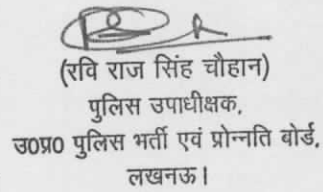 (रवि राज सिंह चौहान)
पुलिस उपाधीक्षक,
उ0प्र0 पुलिस भर्ती एवं प्रोन्नति बोर्ड,
लखनऊ।